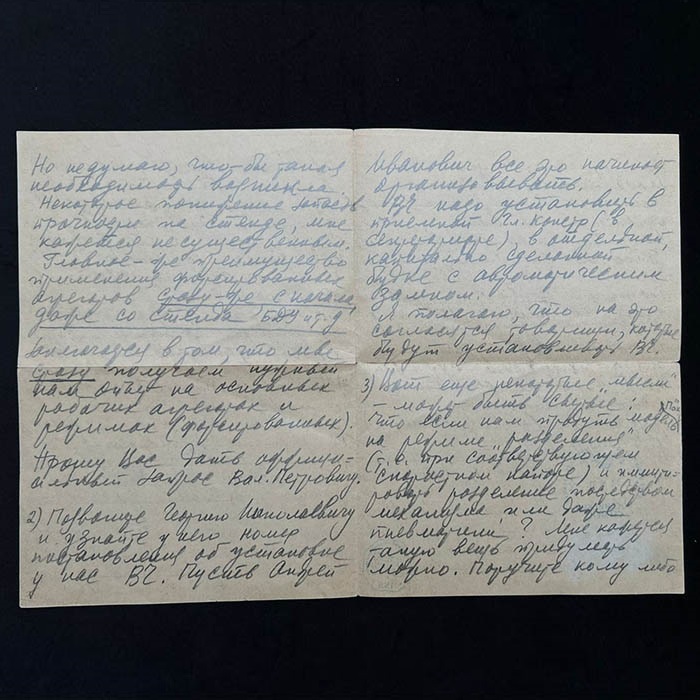 Но не думаю, что-бы такая
необходимость возникла.
Некоторое понижение запасов
прочности на стенде, мне
кажется несущественным.
Главное-же преимущество
применения форсированных
агрегатов сразу-же с начала,
даже со стенда БДУ и т.д.
заключается в том, что мы
сразу получаем нужный
нам опыт на основных
рабочих агрегатах и
режимах (форсированных).
Прошу Вас дать официи-
альный запрос Вал. Петровичу.
2) Позвоните Георгию Николаевичу
и узнайте у него номер
постановления об установке
у нас ВЧ. Пусть Андрей
Иванович все это начинает
организовывать.
ВЧ надо установить в
приемной Гл. констр. (в
секретариате), в отдельной,
капитально сделанной
будке с автоматическим
замком.
Я полагаю, что на это
согласятся товарищи, которые
будут устанавливать ВЧ.
3) Вот еще некоторые „мысли"
– может быть смелые:
что если нам продуть модель
на режиме „разделения"
(т.е. при соответствующем
скоростном напоре) и имити-
ровать разделение посредством
механизма или даже
пневматики? Мне кажется
такую вещь придумать
можно. Поручите кому либо